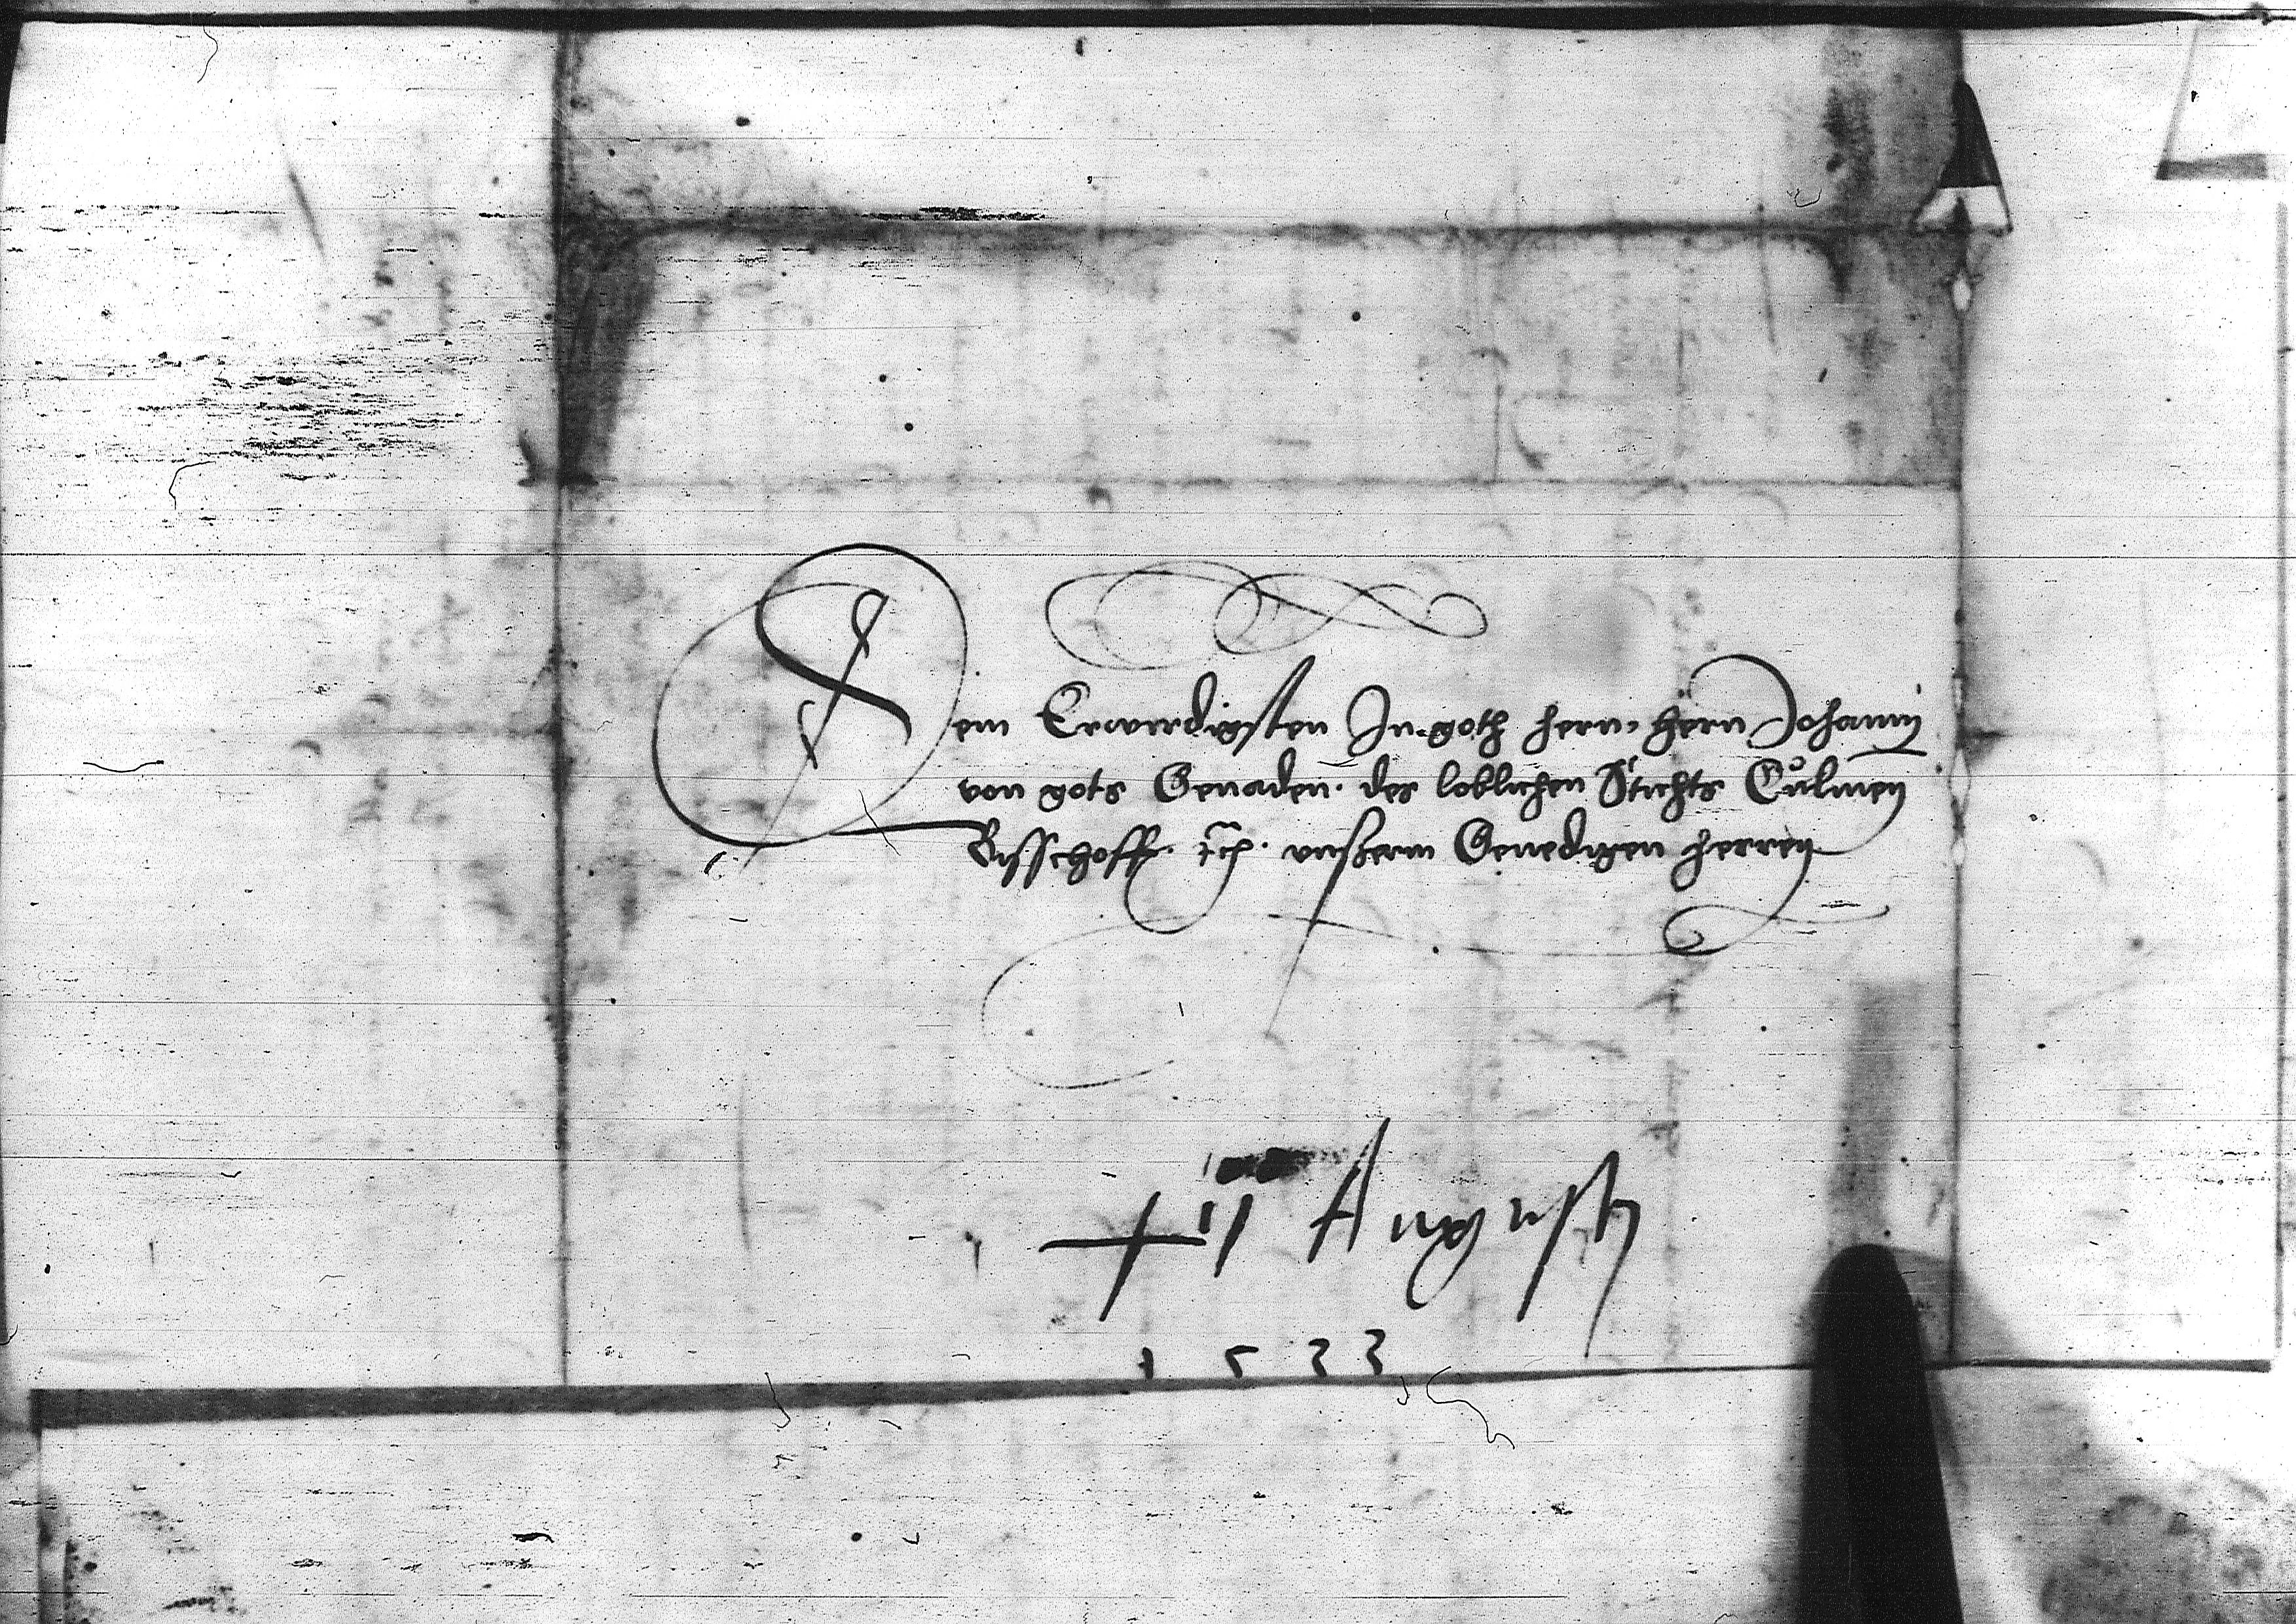 Dem Erwirdigsten In goth hern, hern Johanni
von gots Genaden. des loblichen Stichts Culmen
Bisschoff. etc. unßerm Genedigen herren
xij Augusti
1533